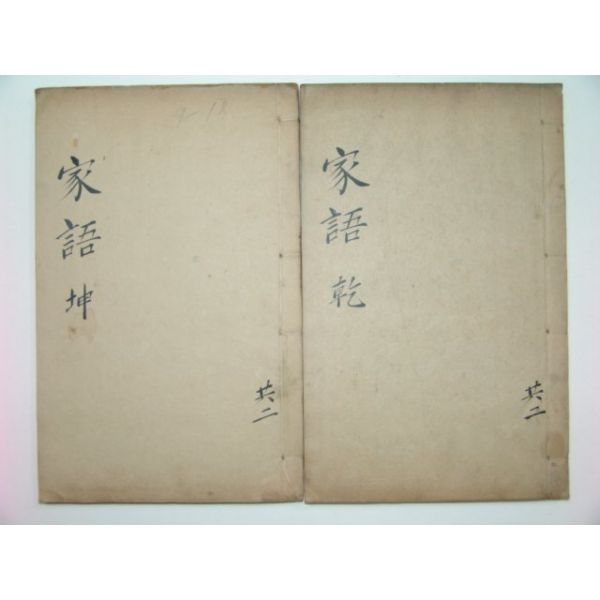 家語 乾
共二
家語 坤
共二